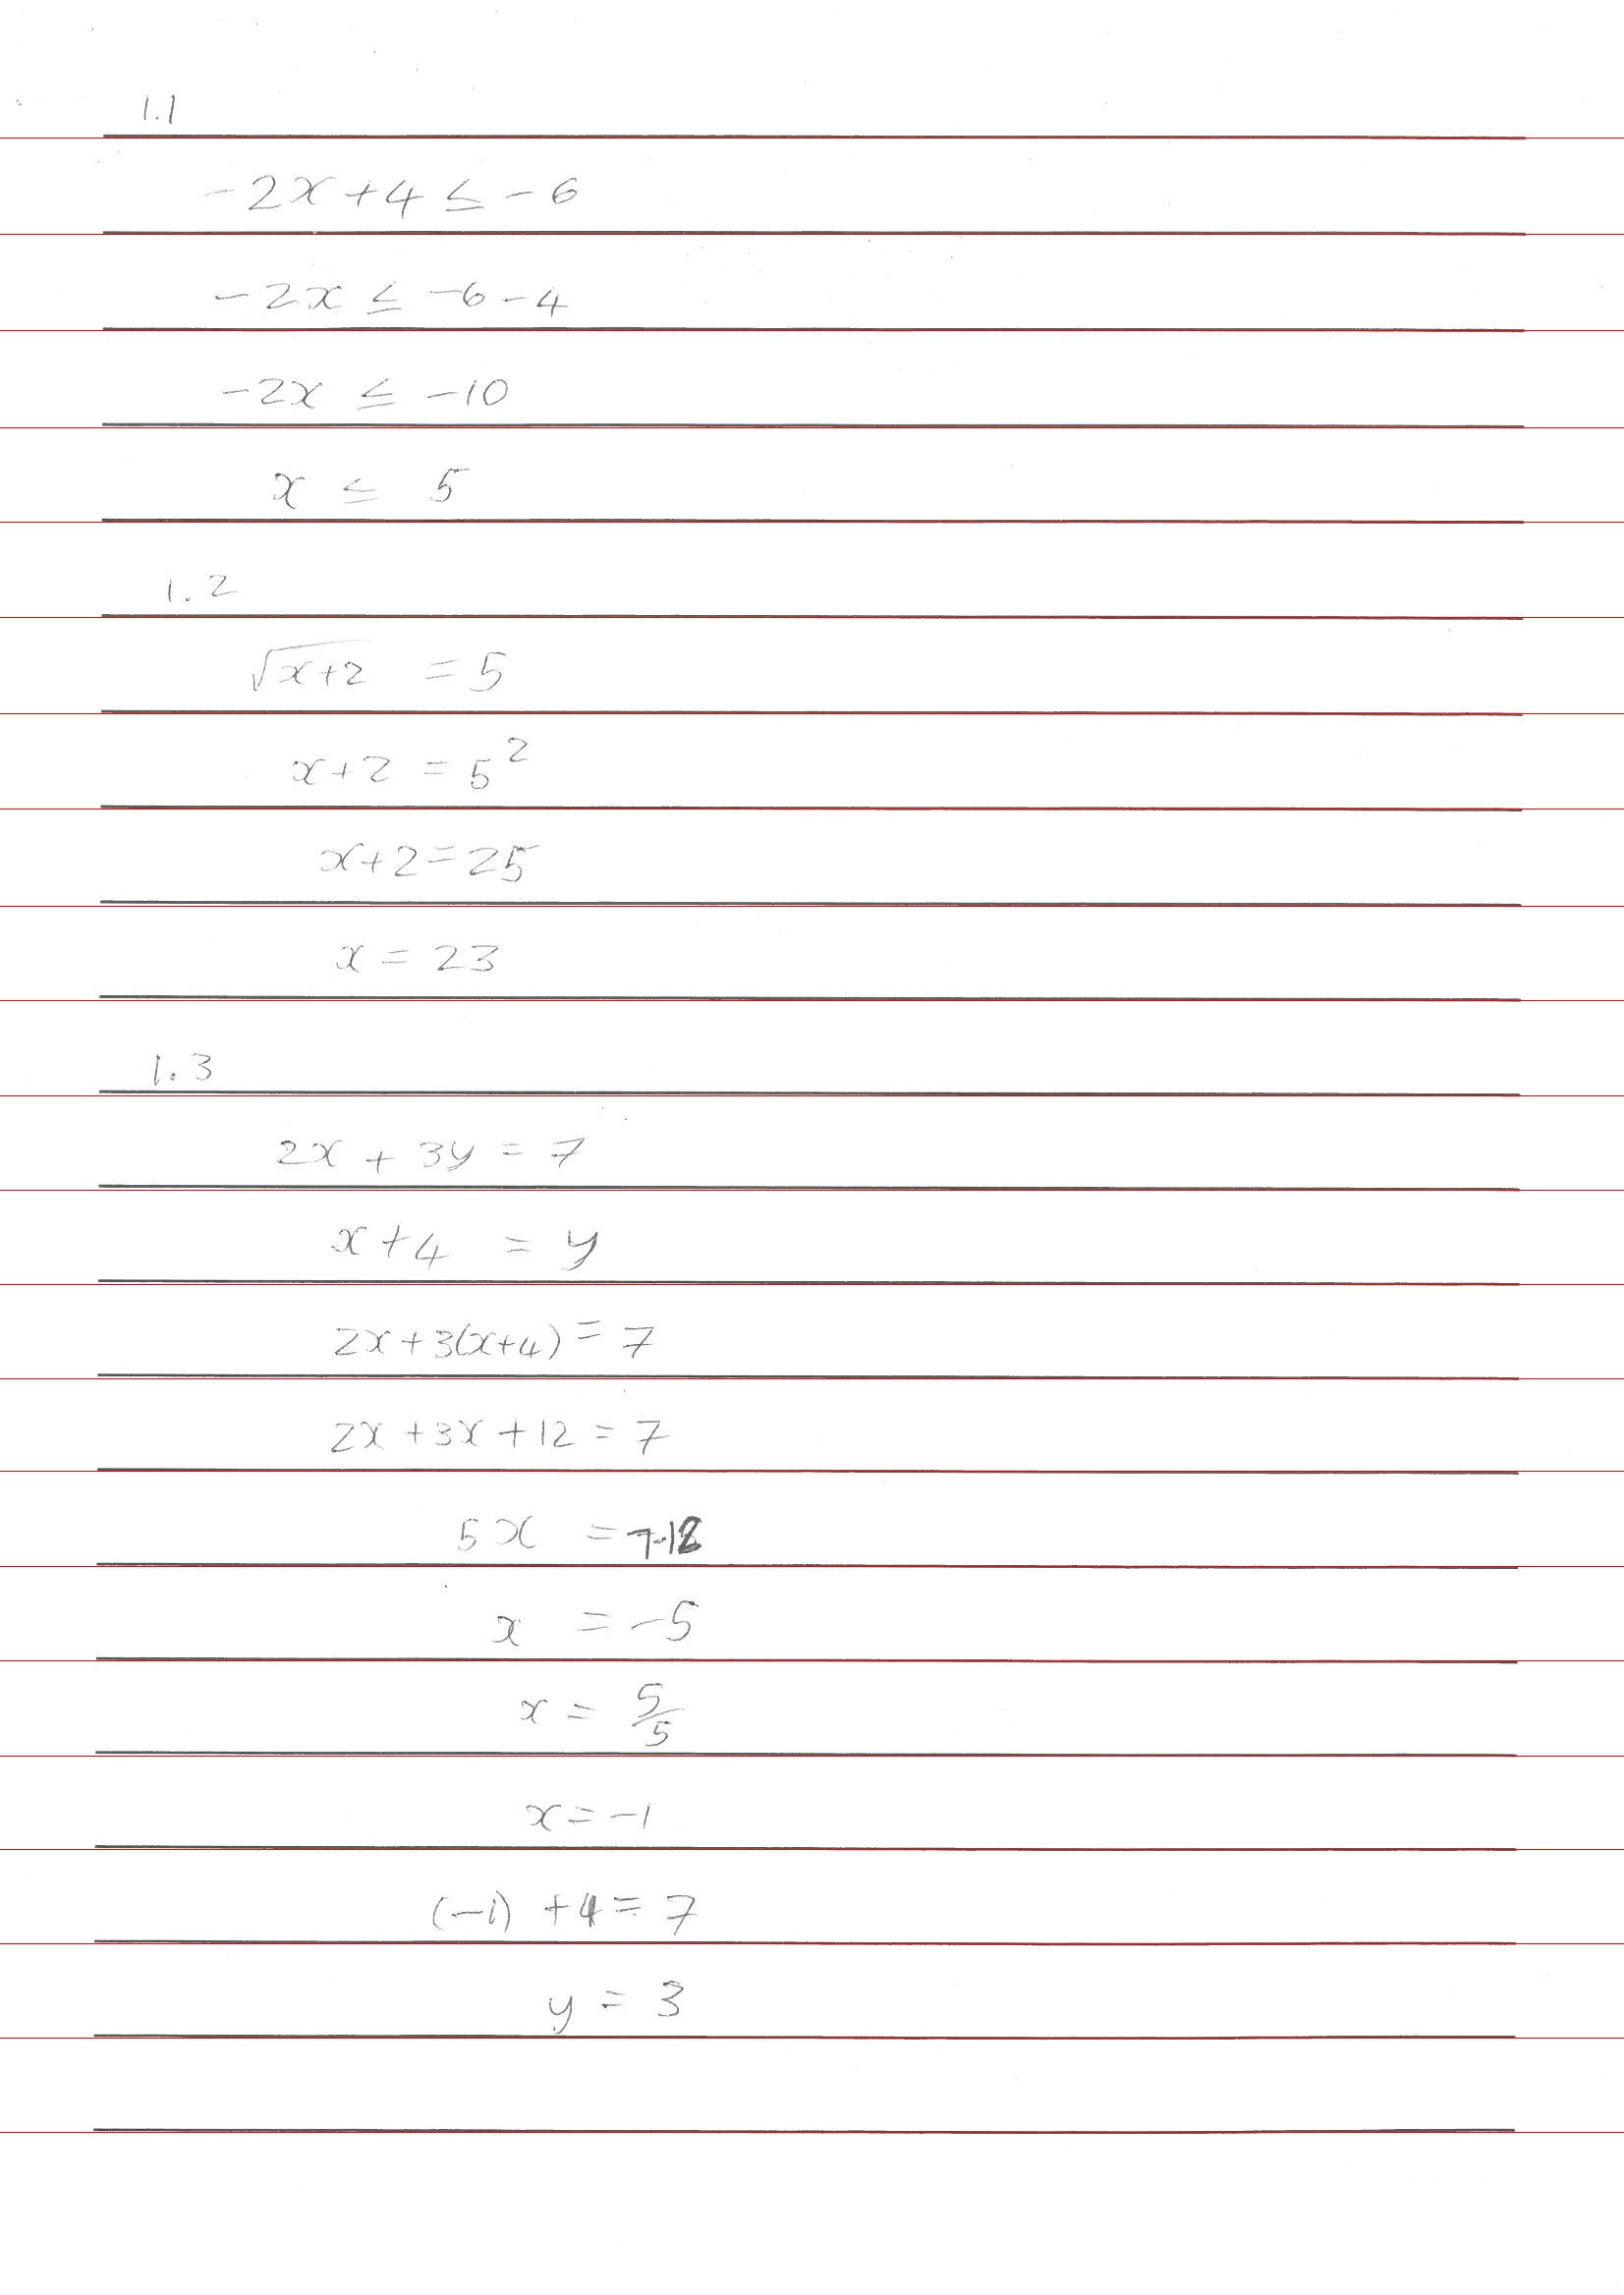 1.1
-2x + 4 ≤ -6
-2x ≤ -6 - 4
-2x ≤ -10
x ≤ 5
1.2
√(x+2) = 5
x + 2 = 5²
x + 2 = 25
x = 23
1.3
2x + 3y = 7
x + 4 = y
2x + 3(x+4) = 7
2x + 3x + 12 = 7
5x = 7-12
x = -5
x = 5/5
x = -1
(-1) + 4 = 7
y = 3